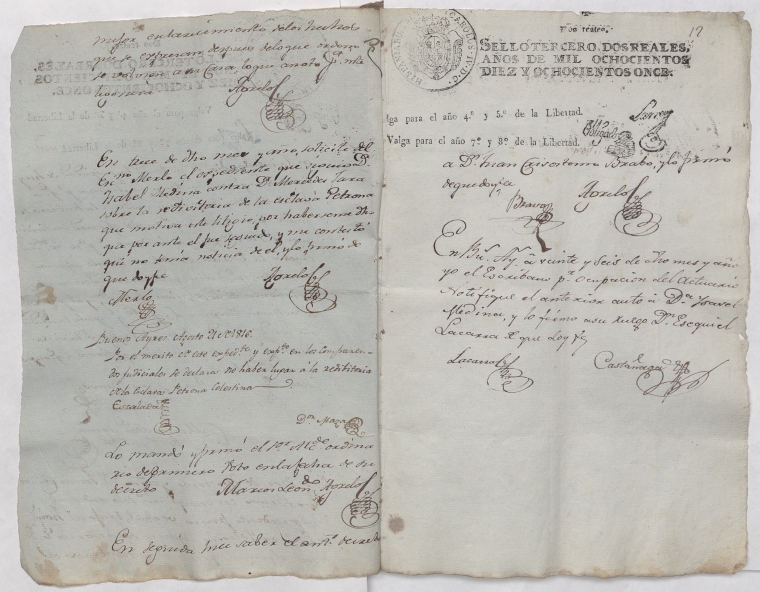 mejor esclarecimiento de los hechos
que expresan, despues de lo que ordenó
se volviese a su Casa, lo que anoto p.ᵃ inte
ligencia
Agrelo
En trece de dho mes y año, solicité del
En.ⁿᵒ Merlo el expediente que siguió D.ᵃ
Isabel Medina contra D.ᵃ Mercedes Lara
sobre la redivitoria de la esclava Petrona
que motiva este litigio, por haberseme
que por ante el fue seguido, y me contestó
que no tenia noticia de el, y lo firmó de
que doy fe
Merlo
Agrelo
Buenos Ayres Agosto 21 de 1816.
Por el merito de este exped.ᵗᵉ y en los comparen-
dos judiciales se declara no haber lugar á la redivitoria
de la esclava Petrona Celestina
Escalada
D.ᵒʳ Maza
Lo mandó y firmó el S.ᵒʳ Alc.ᵈᵉ ordina
rio de primero Voto en la fecha de su
decreto
Marcos Leon.ᵈᵒ Agrelo
En seguida hice saber el ant.ʳ decreto
Dos reales.
17
CAROLUS IV D. G.
SELLO TERCERO, DOS REALES,
AÑOS DE MIL OCHOCIENTOS
DIEZ Y OCHOCIENTOS ONCE.
lga para el año 4.º y 5.º de la Libertad.
Valga para el año 7.º y 8.º de la Libertad.
a D.ⁿ Juan Crisostomo Brabo, y lo firmó
de que doy fe
Bravo
Agrelo
En Bu.ˢ Ay.ˢ á veinte y seis de dho mes y año
yo el Escribano p.ʳ ocupacion del Actuario
Notifiqué el anterior auto á D.ᵃ Isavel
Medina, y lo firmo a su ruego D.ⁿ Esequiel
Lacarra de que doy fe
Lacarra
Castañaga